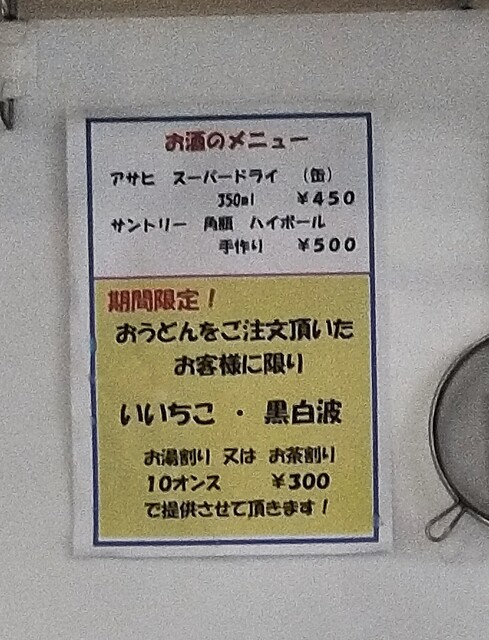 お酒のメニュー
アサヒ スーパードライ （缶）
350ml ￥450
サントリー 角瓶 ハイボール
手作り ￥500
期間限定！
おうどんをご注文頂いた
お客様に限り
いいちこ ・ 黒白波
お湯割り 又は お茶割り
10オンス ￥300
で提供させて頂きます！